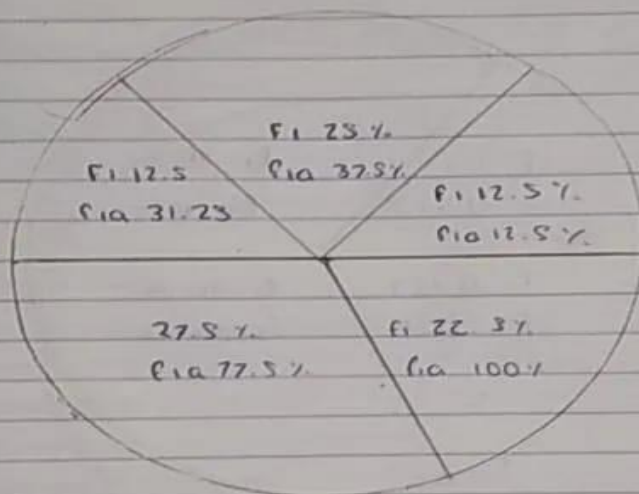 fi 25 %.
fia 37.5%
fi 12.5
fia 31.25
fi 12.5 %.
fia 12.5 %.
27.5 %.
fia 77.5 %
fi 22 5%
fia 100%